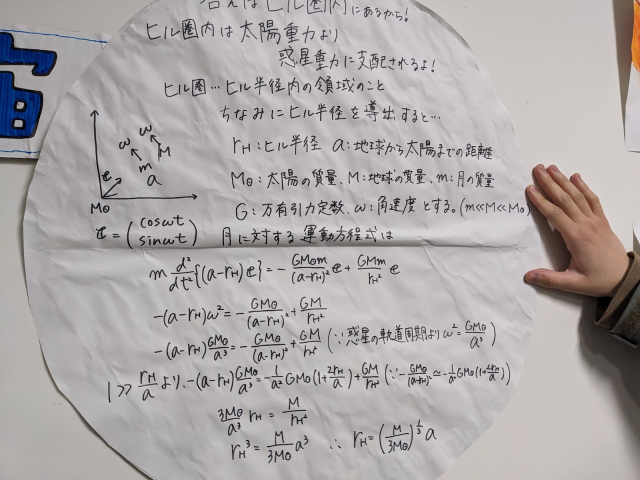 答えはヒル圏内にあるから!
ヒル圏内は太陽重力より
惑星重力に支配されるよ!
ヒル圏…ヒル半径内の領域のこと
ちなみにヒル半径を導出すると…
宙
ω ω
e m M
a
M⊙
r_H:ヒル半径 a:地球から太陽までの距離
M⊙:太陽の質量、M:地球の質量、m:月の質量
G:万有引力定数、ω:角速度とする。(m≪M≪M⊙)
e = (cosωt sinωt) 月に対する運動方程式は
m d²/dt² {(a-r_H)e} = -GM⊙m/(a-r_H)² e + GMm/r_H² e
-(a-r_H)ω² = -GM⊙/(a-r_H)² + GM/r_H²
-(a-r_H)GM⊙/a³ = -GM⊙/(a-r_H)² + GM/r_H² (∵惑星の軌道周期より ω² = GM⊙/a³)
1 ≫ r_H/a より、-(a-r_H)GM⊙/a³ = -1/a² GM⊙(1+2r_H/a) + GM/r_H² (∵ -GM⊙/(a-r_H)² ≃ -1/a² GM⊙(1+2r_H/a))
3M⊙/a³ r_H = M/r_H²
r_H³ = M/3M⊙ a³ ∴ r_H = (M/3M⊙)^(1/3) a